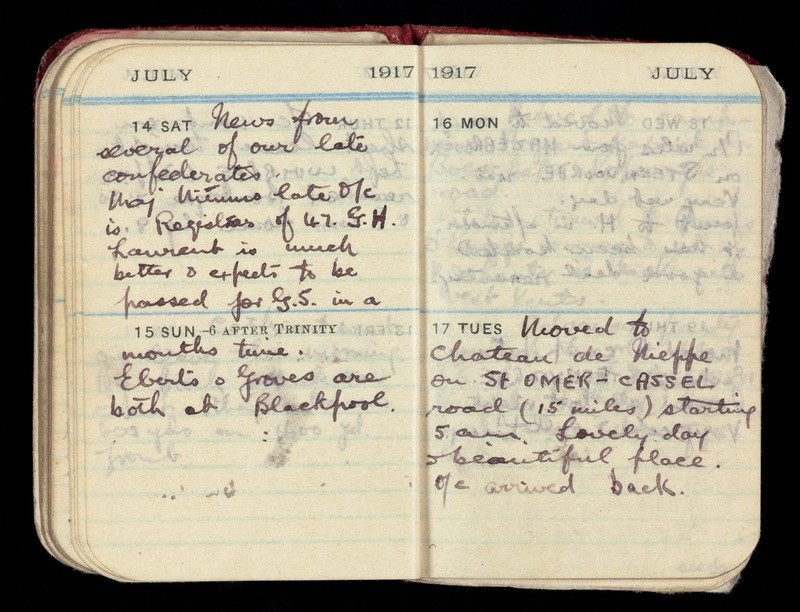 JULY 1917
14 SAT News from
several of our late
confederates.
Maj Nimmo late O/c
is Registrar of 47. G.H.
Laurent is much
better & expects to be
passed for G.S. in a
15 SUN–6 AFTER TRINITY
months time.
Eberts & Groves are
both at Blackpool.
1917 JULY
16 MON
17 TUES Moved to
Chateau de Nieppe
on St OMER – CASSEL
road (15 miles) starting
5 a.m. Lovely day
& beautiful place.
O/c arrived back.